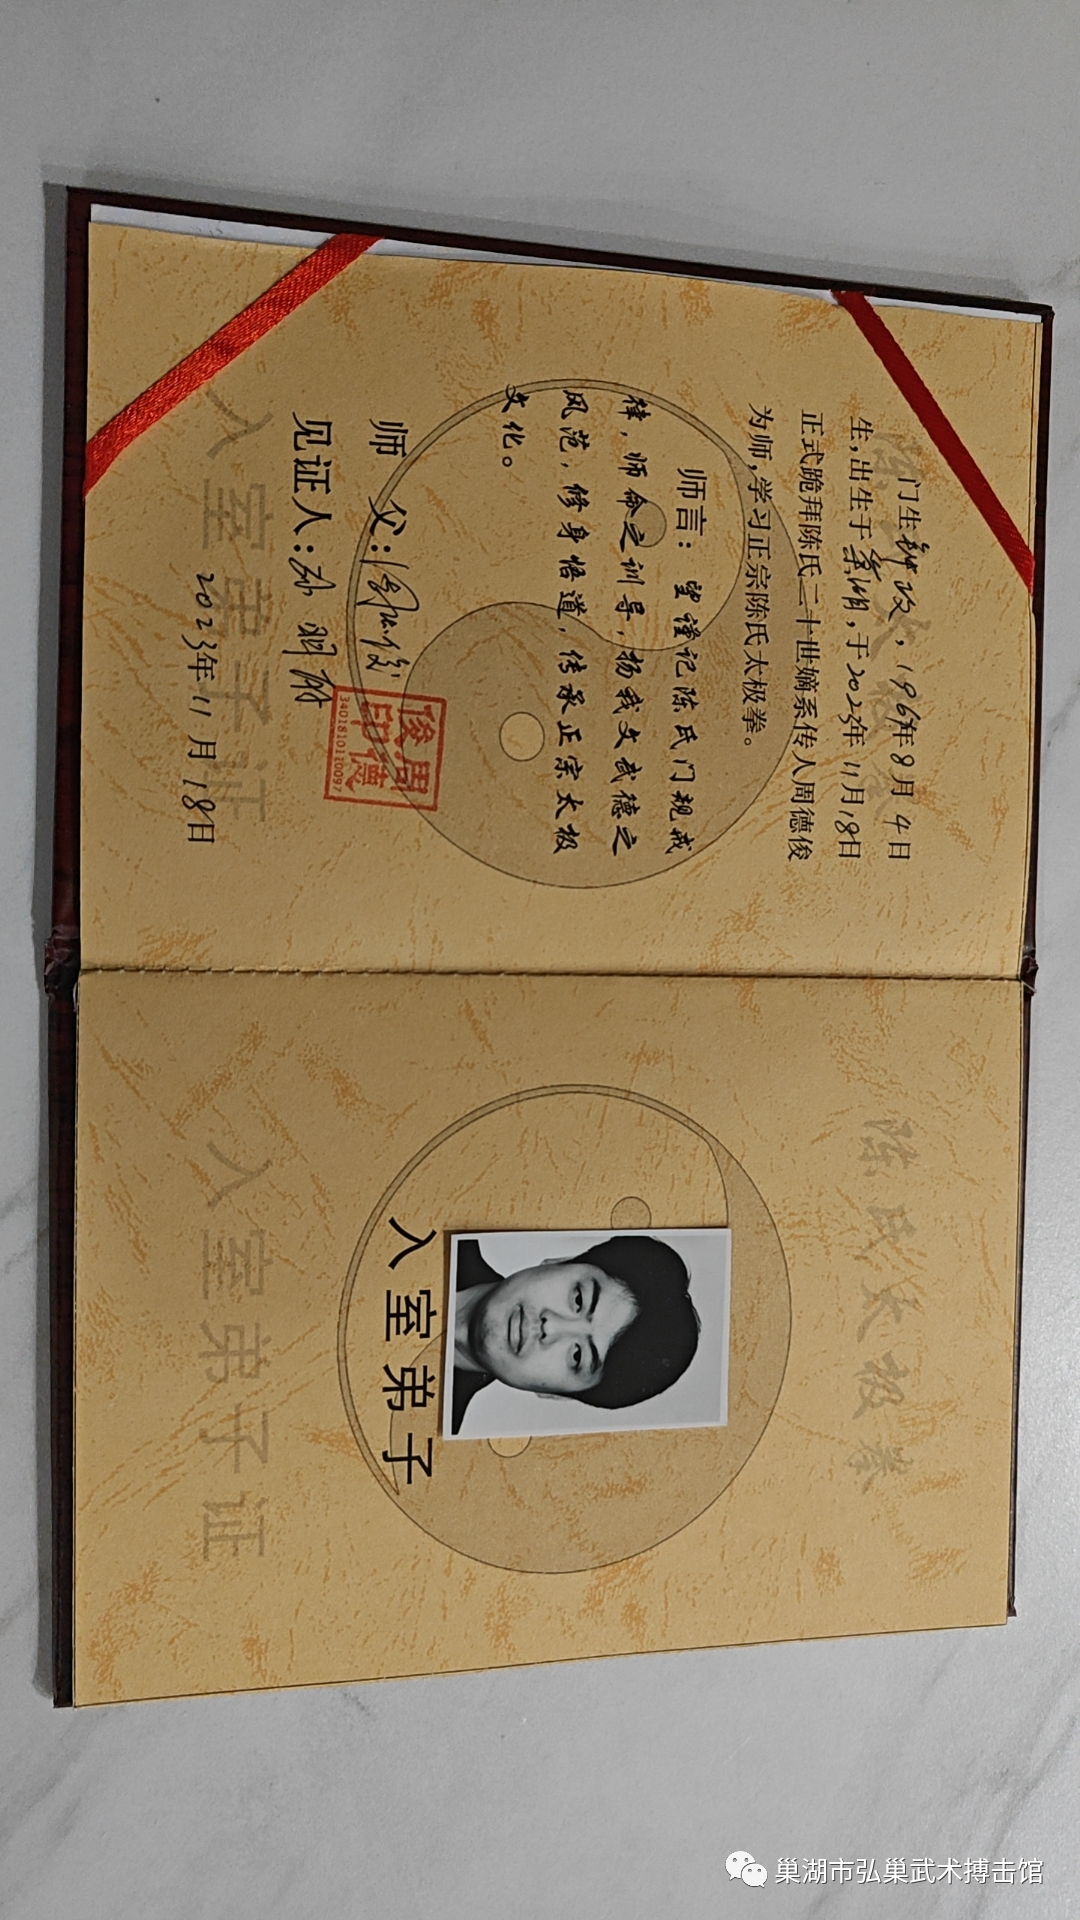 陈氏太极拳
门生钟政，196年8月4日
生，出生于巢湖，于2023年11月18日
正式跪拜陈氏二十世嫡系传人周德俊
为师，学习正宗陈氏太极拳。
师言：望谨记陈氏门规戒
律，师命之训导，扬我文武德之
风范，修身悟道，传承正宗太极
文化。
师父：周德俊
周德俊印
3401810110097
见证人：
2023年11月18日
入室弟子证
陈氏太极拳
入室弟子
入室弟子证
巢湖市弘巢武术搏击馆